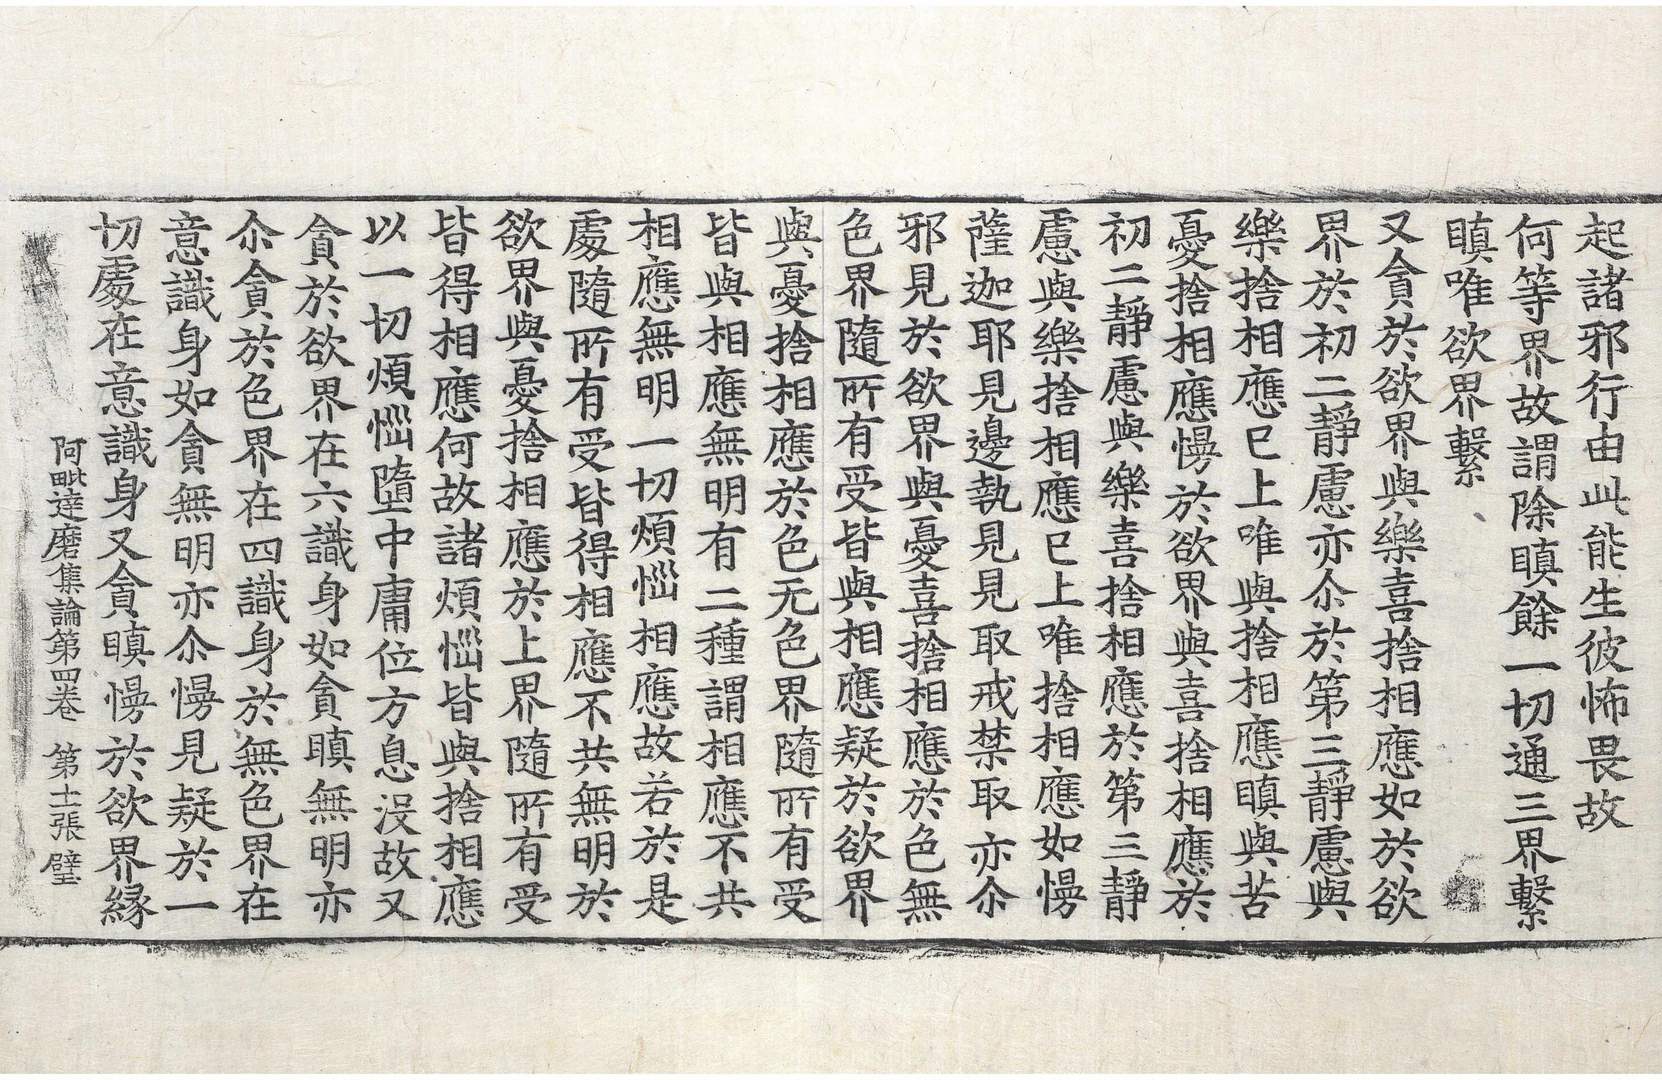 起諸邪行由此能生彼怖畏故
何等界故謂除瞋餘一切通三界繫
瞋唯欲界繫
又貪於欲界與樂喜捨相應如於欲
界於初二靜慮亦尒於第三靜慮與
樂捨相應已上唯與捨相應瞋與苦
憂捨相應慢於欲界與喜捨相應於
初二靜慮與樂喜捨相應於第三靜
慮與樂捨相應已上唯捨相應如慢
薩迦耶見邊執見見取戒禁取亦尒
邪見於欲界與憂喜捨相應於色無
色界隨所有受皆與相應疑於欲界
與憂捨相應於色无色界隨所有受
皆與相應無明有二種謂相應不共
相應無明一切煩惱相應故若於是
處隨所有受皆得相應不共無明於
欲界與憂捨相應於上界隨所有受
皆得相應何故諸煩惱皆與捨相應
以一切煩惱墮中庸位方息沒故又
貪於欲界在六識身如貪瞋無明亦
尒貪於色界在四識身於無色界在
意識身如貪無明亦尒慢見疑於一
切處在意識身又貪瞋慢於欲界緣
阿毗達磨集論第四卷 第十一張 璧